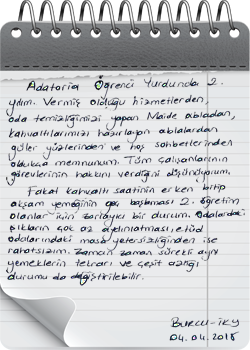 Adatoria Öğrenci Yurdunda 2.
yılım. Vermiş olduğu hizmetlerden,
oda temizliğimizi yapan Naide abladan,
kahvaltılarımızı hazırlayan ablalardan
güler yüzlerinden ve hoş sohbetlerinden
oldukça memnunum. Tüm çalışanlarının
görevlerinin hakkını verdiğini düşünüyorum.
Fakat kahvaltı saatinin erken bitip
akşam yemeğinin geç başlaması 2. öğretim
olanlar için zorlayıcı bir durum. Odalardaki
ışıkların çok az aydınlatması, etüd
odalarındaki masa yetersizliğinden ise
rahatsızım. Zaman zaman sürekli aynı
yemeklerin tekrarı ve çeşit azlığı
durumu da değiştirilebilir.
04.04.2018